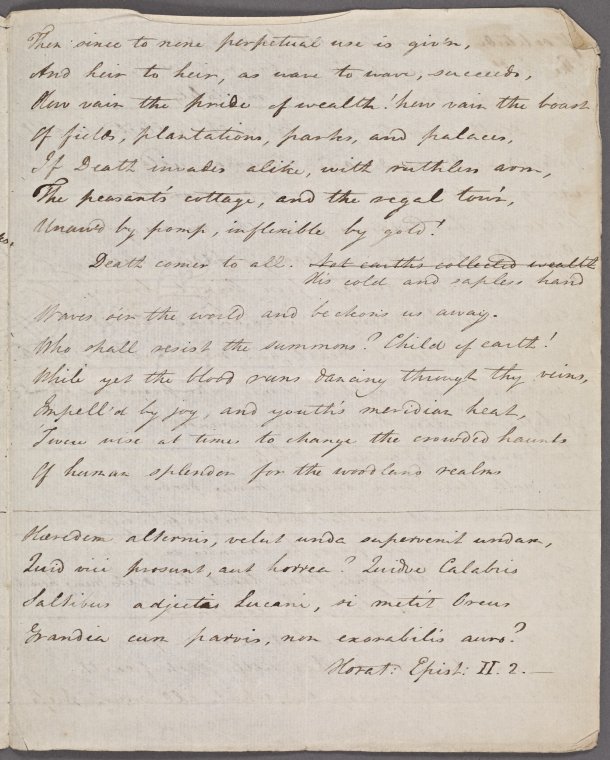 Then since to none perpetual use is giv'n,
And heir to heir, as wave to wave, succeeds,
How vain the pride of wealth! how vain the boast
Of fields, plantations, parks, and palaces,
If Death invades alike, with ruthless arm,
The peasant's cottage, and the regal tow'r,
Unaw'd by pomp, inflexible by gold!
Death comes to all. Not earth's collected wealth
His cold and sapless hand
Waves o'er the world and beckons us away.
Who shall resist the summons? Child of earth!
While yet the blood runs dancing through thy veins,
Impell'd by joy, and youth's meridian heat,
'Twere wise at times to change the crowded haunts
Of human splendor for the woodland realms
Hæredem alternis, velut unda supervenit undam,
Quid vici prosunt, aut horrea? Quidve Calabris
Saltibus adjectas Lucani, si metit Orcus
Grandia cum parvis, non exorabilis auro?
Horat: Epist: II. 2.—